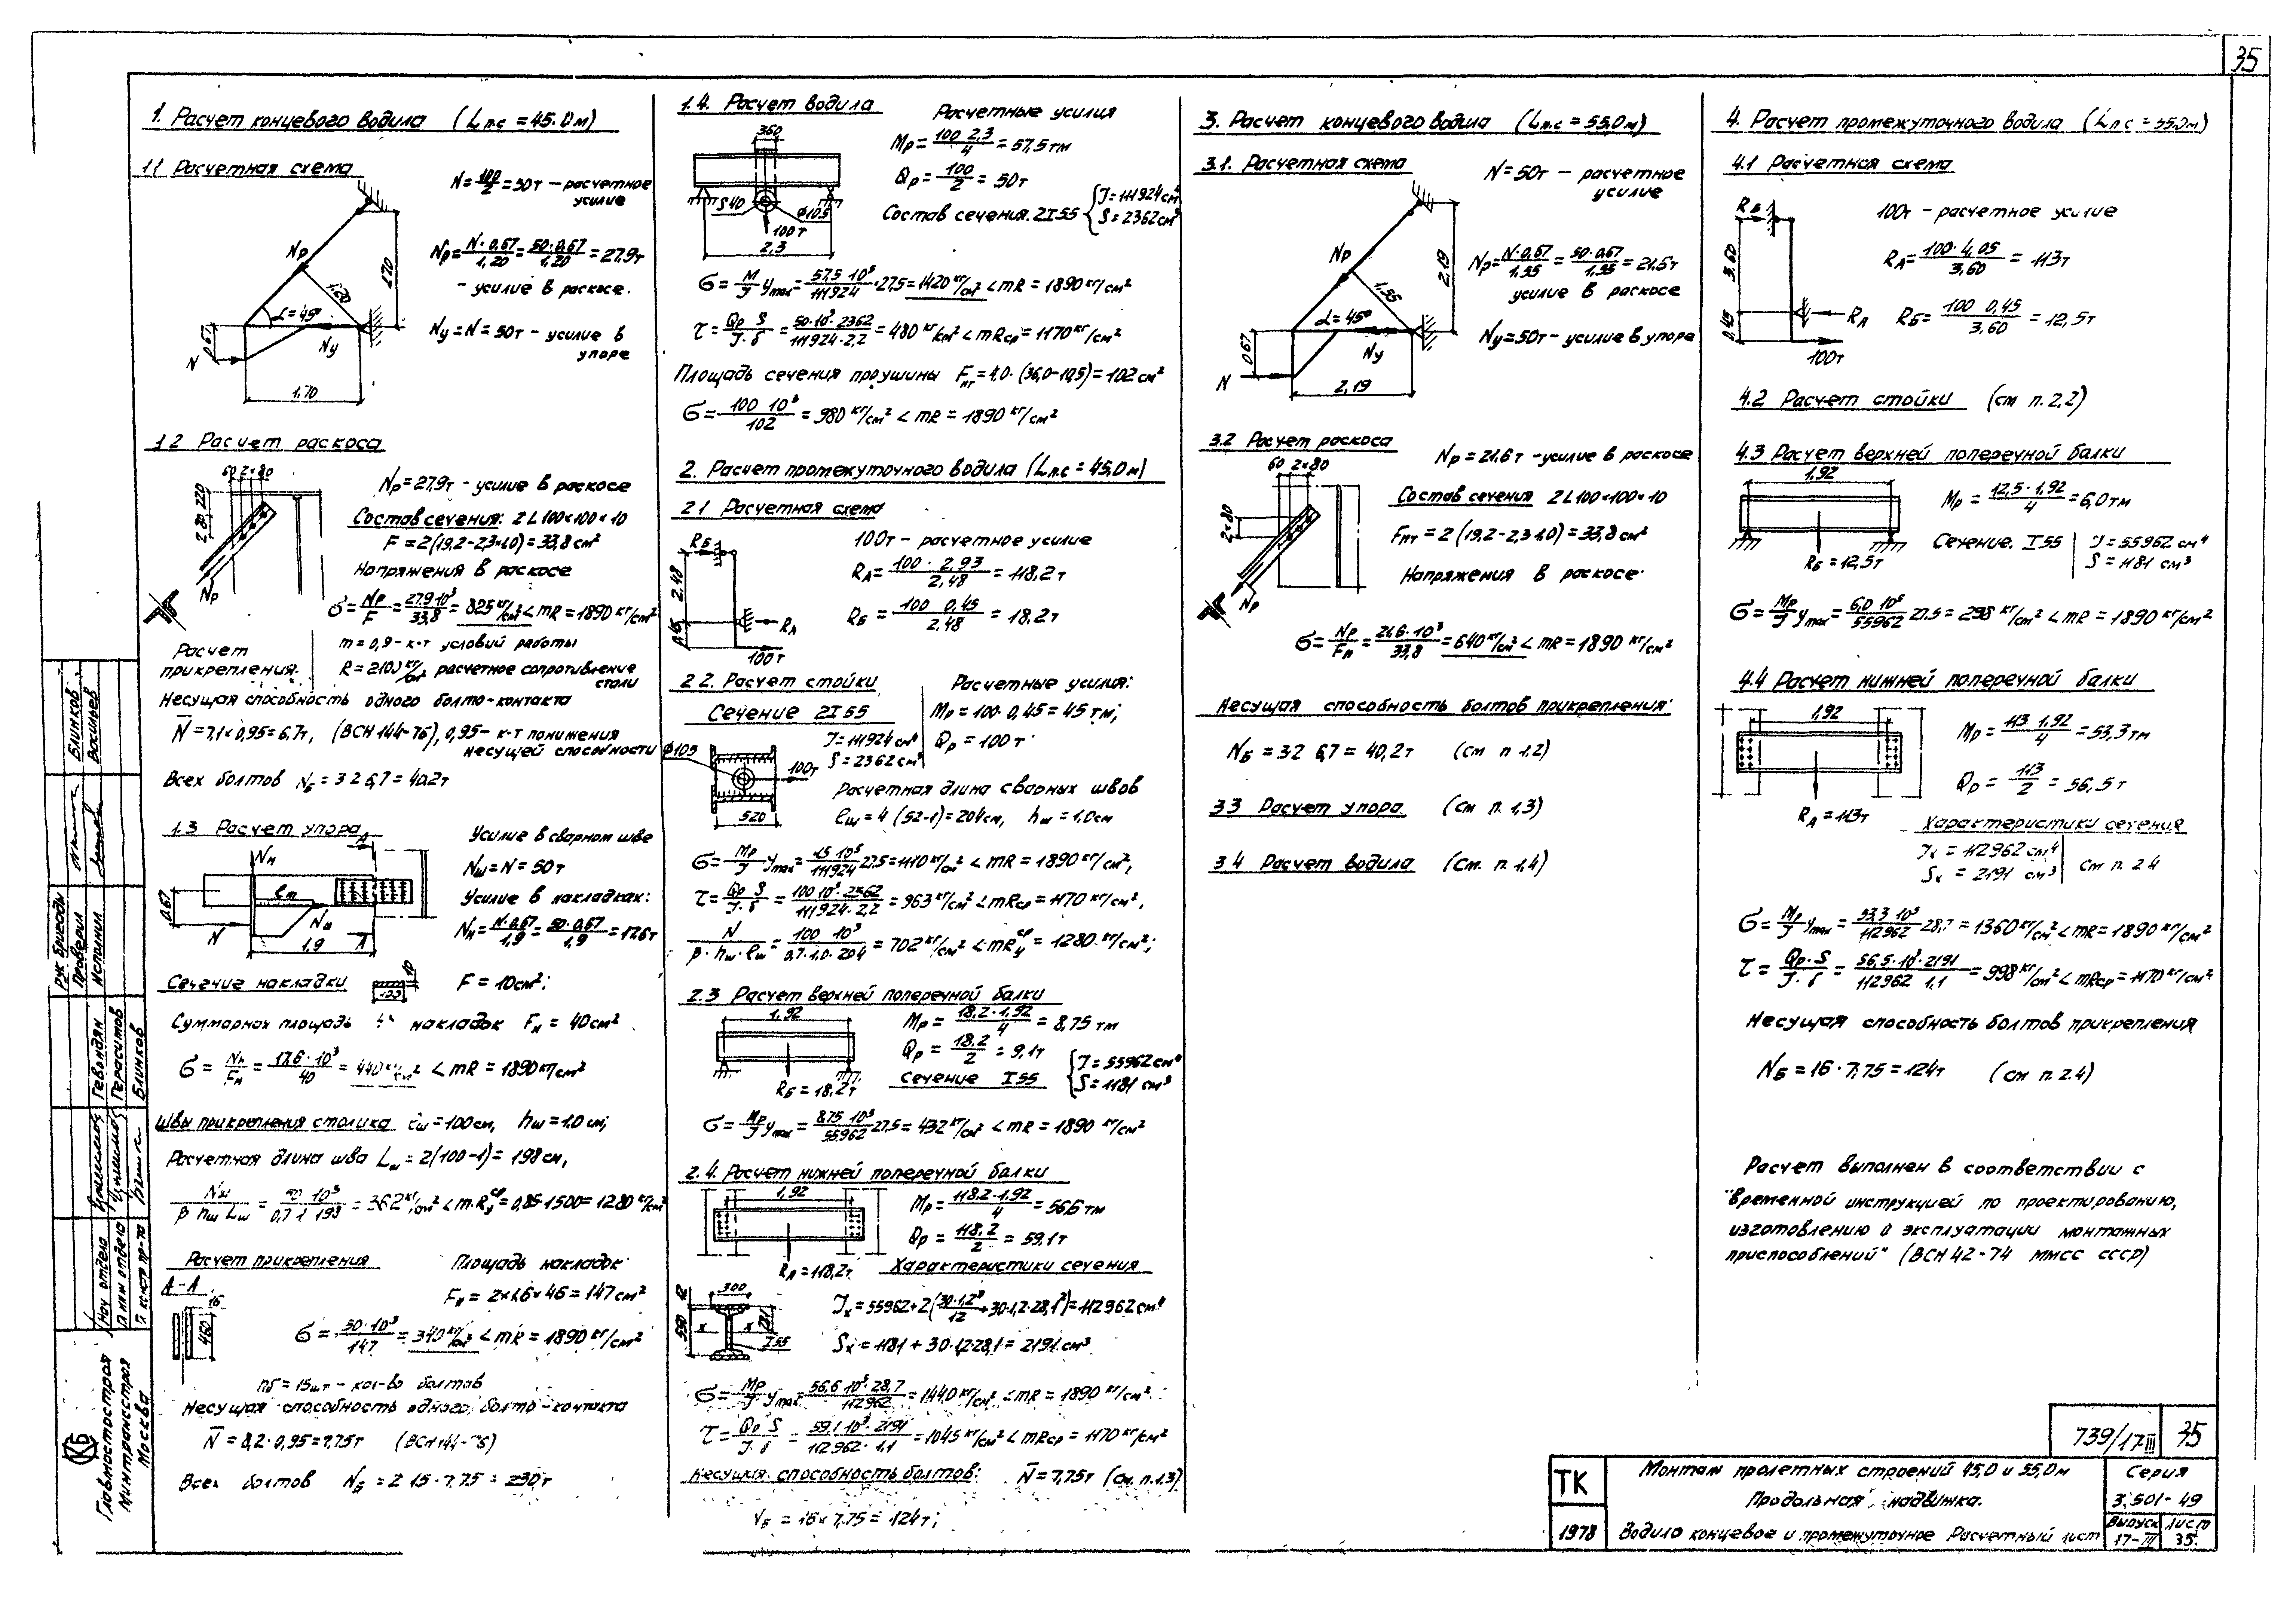 35
1. Расчет концевого водила (Lп.с = 45.0м)
1.1 Расчетная схема
N = 100/2 = 50т – расчетное
усилие
Nр = N·0,67/1,20 = 50·0,67/1,20 = 27,9т
- усилие в раскосе.
Nу = N = 50т - усилие в
упоре
Nр
1,20
1,70
α=45°
0,67
N
Nу
1,70
1.2 Расчет раскоса
60 2×80
2×80 220
Nр
Nр = 27,9т - усилие в раскосе
Состав сечения: 2L100×100×10
F = 2(19,2-2,3×1,0) = 33,8 см²
Напряжения в раскосе
σ = Nр/F = 27,9·10³/33,8 = 825 кг/см² < mR = 1890 кг/см²
Расчет
прикрепления.
m = 0,9 - к-т условий работы
R = 2100 кг/см² расчетное сопротивление
стали
Несущая способность одного болто-контакта
N̄ = 7,1×0,95 = 6,7т, (ВСН 144-76), 0,95 - к-т понижения
несущей способности
Всех болтов Nб = 3·2·6,7 = 40,2т
1.3 Расчет упора
А
Nн
ℓп
0,67
N
Nш
1,9
А
Усилие в сварном шве
Nш = N = 50т
Усилие в накладках:
Nн = N·0,67/1,9 = 50·0,67/1,9 = 17,6т
Сечение накладки
10
100
F = 10см²;
Суммарная площадь накладок Fн = 40см²
σ = Nн/Fн = 17,6·10³/40 = 440 кг/см² < mR = 1890 кг/см²
Швы прикрепления столика ℓш = 100см, hш = 1,0 см;
Расчетная длина шва Lш = 2(100-1) = 198см,
Nш/β hш Lш = 50·10³/0,7·1·198 = 362 кг/см² < m·Rуср = 0,85·1500 = 1280 кг/см²
Расчет прикрепления
Площадь накладок
А-А
16
460
Fн = 2×1,6×46 = 147см²
σ = 50·10³/147 = 340 кг/см² < mR = 1890 кг/см²
nб = 15шт - кол-во болтов
Несущая способность одного болто-контакта
N̄ = 8,2·0,95 = 7,75т (ВСН 144-76)
Всех болтов Nб = 2·15·7,75 = 230т
1.4. Расчет водила
Расчетные усилия
360
δ40
Ø105
100т
2,3
Mр = 100·2,3/4 = 57,5тм
Qр = 100/2 = 50т
Состав сечения. 2I55 { J = 111924см⁴
S = 2362см³
σ = M/J yмах = 57,5·10⁵/111924·27,5 = 1420 кг/см² < mR = 1890 кг/см²
τ = Qр S/J·δ = 50·10³·2362/111924·2,2 = 480 кг/см² < mRср = 1170 кг/см²
Площадь сечения проушины Fнт = 4,0·(36,0-10,5) = 102см²
σ = 100·10³/102 = 980 кг/см² < mR = 1890 кг/см²
2. Расчет промежуточного водила (Lп.с = 45,0м)
2.1 Расчетная схема
Rб
2,48
0,45
RА
100т
100т – расчетное усилие
RА = 100·2,93/2,48 = 118,2т
Rб = 100·0,45/2,48 = 18,2т
2.2. Расчет стойки
Расчетные усилия:
Сечение 2I55
Mр = 100·0,45 = 45тм;
J = 111924см⁴
Qр = 100т
S = 2362см³
Ø105
100т
520
Расчетная длина сварных швов
ℓш = 4(52-1) = 204см, hш = 1,0см
σ = Mр/J yмах = 45·10⁵/111924 27,5 = 1110 кг/см² < mR = 1890 кг/см²,
τ = Qр S/J·δ = 100·10³·2362/111924·2,2 = 963 кг/см² < mRср = 1170 кг/см²,
N/β·hш·ℓш = 100·10³/0,7·1,0·204 = 702 кг/см² < mRуср = 1280 кг/см²;
2.3 Расчет верхней поперечной балки
1,92
Rб = 18,2т
Mр = 18,2·1,92/4 = 8,75тм
Qр = 18,2/2 = 9,1т
Сечение I55
{ J = 55962см⁴
S = 1181см³
σ = Mр/J yмах = 8,75·10⁵/55962 27,5 = 432 кг/см² < mR = 1890 кг/см²
2.4. Расчет нижней поперечной балки
1,92
RА = 118,2т
Mр = 118,2·1,92/4 = 56,6тм
Qр = 118,2/2 = 59,1т
Характеристики сечения
12
300
550
x x
281
I55
Jх = 55962+2(30·1,2³/12+30·1,2·28,1²) = 112962см⁴
Sх = 1181+30·1,2·28,1 = 2191см³
σ = Mр/J yмах = 56,6·10⁵·28,7/112962 = 1440 кг/см² < mR = 1890 кг/см²
τ = Qр S/J·δ = 59,1·10³·2191/112962·1,1 = 1045 кг/см² < mRср = 1170 кг/см²
Несущая способность болтов: N̄ = 7,75т (см. п.1.3)
Nб = 16×7,75 = 124т;
3. Расчет концевого водила (Lп.с = 55,0м)
3.1. Расчетная схема
Nр
1,55
2,19
α=45°
0,67
N
Nу
2,19
N = 50т – расчетное
усилие
Nр = N·0,67/1,55 = 50·0,67/1,55 = 21,6т
усилие в раскосе
Nу = 50т - усилие в упоре
3.2 Расчет раскоса
60 2×80
2×80
Nр
Nр = 21.6т - усилие в раскосе
Состав сечения 2L100×100×10
Fнт = 2(19,2-2,3·1,0) = 33,8см²
Напряжения в раскосе.
σ = Nр/Fн = 21,6·10³/33,8 = 640 кг/см² < mR = 1890 кг/см²
Несущая способность болтов прикрепления
Nб = 3·2·6,7 = 40,2т (см п 1.2)
3.3 Расчет упора (см п. 1,3)
3.4 Расчет водила (см. п. 1,4)
4. Расчет промежуточного водила (Lп.с = 55,0м)
4.1 Расчетная схема
Rб
3,60
0,45
RА
100т
100т – расчетное усилие
RА = 100·4,05/3,60 = 113т
Rб = 100·0,45/3,60 = 12,5т
4.2 Расчет стойки (см п. 2,2)
4.3 Расчет верхней поперечной балки
1,92
Rб = 12,5т
Mр = 12,5·1,92/4 = 6,0тм
Сечение. I55
J = 55962см⁴
S = 1181см³
σ = Mр/J yмах = 6,0·10⁵/55962 27,5 = 298 кг/см² < mR = 1890 кг/см²
4.4 Расчет нижней поперечной балки
1,92
RА = 113т
Mр = 113·1,92/4 = 53,3тм
Qр = 113/2 = 56,5т
Характеристики сечения
Jх = 112962см⁴
Sх = 2191см³
см п 2.4
σ = Mр/J yмах = 53,3·10⁵/112962 28,7 = 1360 кг/см² < mR = 1890 кг/см²
τ = Qр·S/J·δ = 56,5·10³·2191/112962·1,1 = 998 кг/см² < mRср = 1170 кг/см²
Несущая способность болтов прикрепления
Nб = 16·7,75 = 124т (см п. 2.4)
Расчет выполнен в соответствии с
"временной инструкцией по проектированию,
изготовлению и эксплуатации монтажных
приспособлений" (ВСН 42-74 ММСС СССР)
739/17III 35
ТК
1978
Монтаж пролетных строений 45,0 и 55,0м
Продольная надвижка.
Водило концевое и промежуточное Расчетный лист
Серия
3.501-49
Выпуск
17-III
Лист
35
Рук бригады
Проверил
Исполнил
Блинков
Васильев
Нач отдела
Гл инж отдела
Гл констр пр-та
Гевондян
Герасимов
Блинков
Главмостострой
Минтрансстроя
Москва
КБ